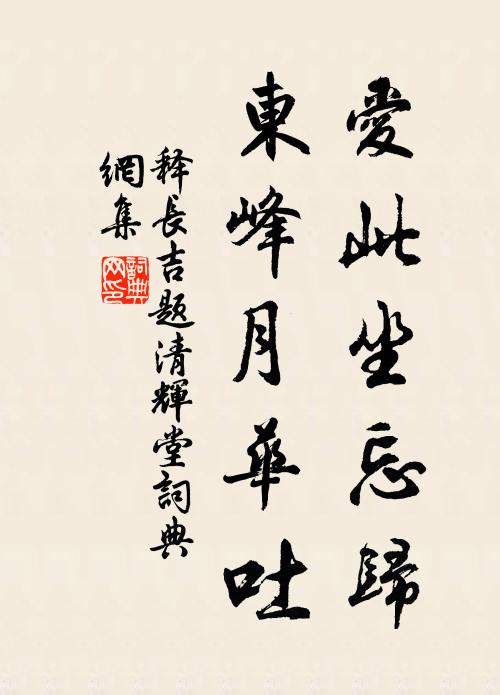 愛此坐忘歸
東峰月華吐
釋長吉題清輝堂詞典
網集
詞典
网印